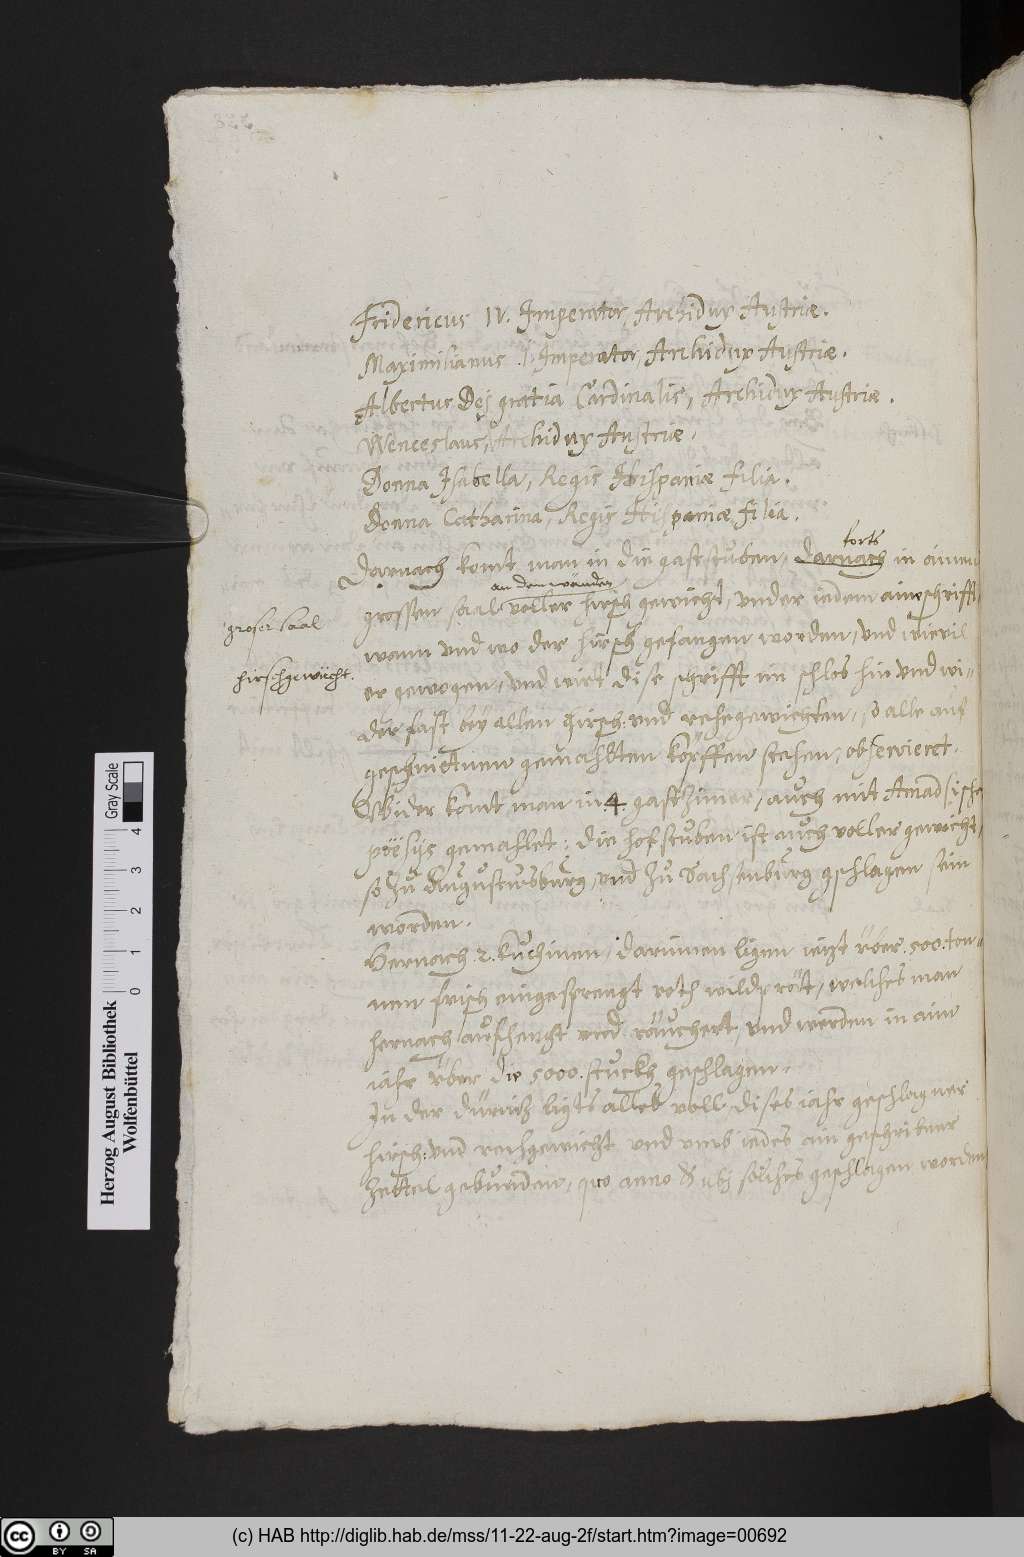 Fridericus IV. Imperator, Archidux Austriæ.
Maximilianus .I. Imperator, Archidux Austriæ.
Albertus Dej gratia Cardinalis, Archidux Austriæ.
Wenceslaus, Archidux Austriæ.
Donna Isabella, Regis Hispaniæ filia.
Donna Catharina, Regis Hispaniæ filia.
Darnach komt man in die gaststuben, darnach forts in ainen
grossen saal an den wänden voller hirsch gewicht, vnder iedem aine schrifft,
groser saal
wann vnd wo der hirsch gefangen worden, vnd wievil
hirschgewicht.
er gewogen, vnd wirt dise schrifft im schlos hin vnd wi-
der fast bey allen hirsch: vnd rehegewichten, so alle auf
geschnittnen gemahlten köpffen stehen, observieret.
Wider komt man in 4 gastzimer, auch mit
poësijs gemahlet: die hofstuben ist auch voller gewicht,
so zu Augustusburg, vnd zu geschlagen sein
worden.
Hernach 2. kuchinen, darinnen ligen iezt über .500. ton-
nen frisch eingesprengt roth wildprät, welches man
hernach aufhengt vnd räuchert, vnd werden in aim
iahr über die 5000. stuckh geschlagen.
In der ligts alles voll dises iahr geschlagner
hirsch: vnd rehgewicht vnd vmb iedes ain geschribner
zettel gebunden, quo anno & ubj solches geschlagen worden
Herzog August Bibliothek
Wolfenbüttel
Gray Scale
0 1 2 3 4
cc BY SA
(c) HAB http://diglib.hab.de/mss/11-22-aug-2f/start.htm?image=00692